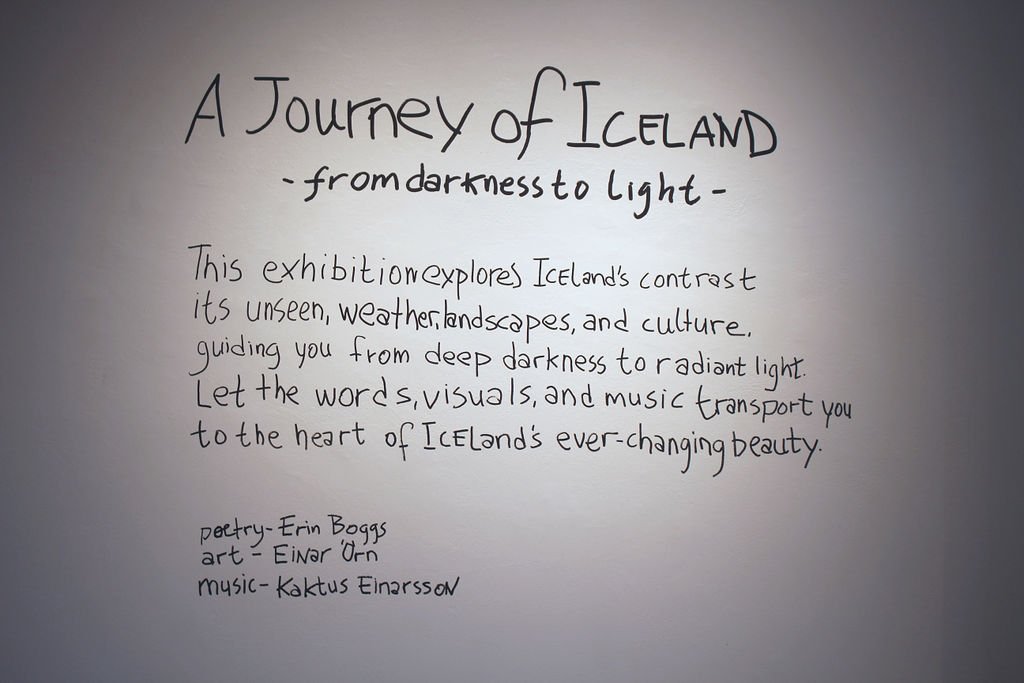 A Journey of ICELAND
- from darkness to light -
This exhibition explores Iceland's contrast
its unseen, weather, landscapes, and culture,
guiding you from deep darkness to radiant light.
Let the words, visuals, and music transport you
to the heart of Iceland's ever-changing beauty.
poetry - Erin Boggs
art - Einar Örn
music - Kaktus Einarsson